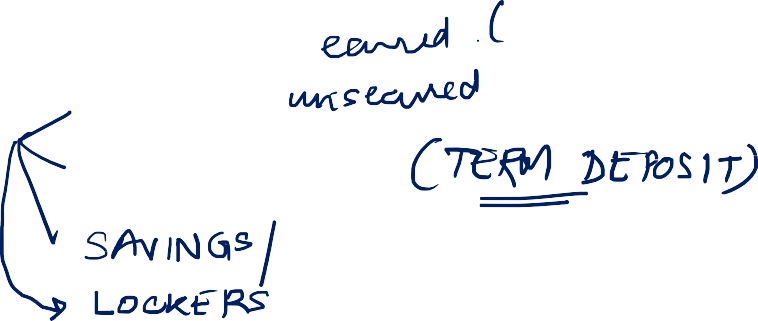 earred . (
unsecured
(TERM DEPOSIT)
SAVINGS/
LOCKERS